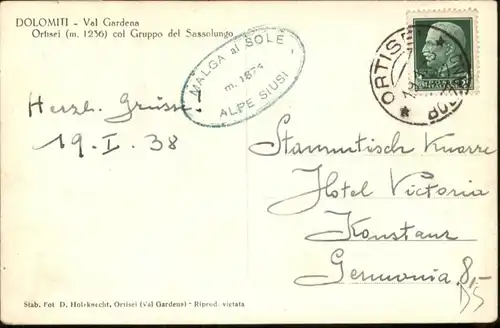 DOLOMITI - Val Gardena
Ortisei (m. 1236) col Gruppo del Sassolungo
MALGA al SOLE
m. 1874
ALPE SIUSI
ORTISE
BOLZ
Herzl. Grüsse!
19. I. 38
Stammtisch Knorre
Hotel Victoria
Konstanz
Germania.
8,-
Stab. Fot D. Holzknecht, Ortisei (Val Gardena) - Riprod. vietata